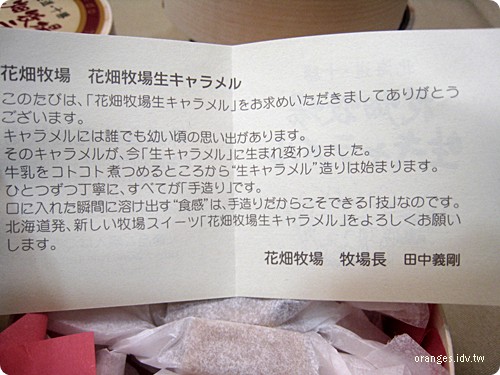 花畑牧場　花畑牧場生キャラメル
このたびは、「花畑牧場生キャラメル」をお求めいただきましてありがとう
ございます。
キャラメルには誰でも幼い頃の思い出があります。
そのキャラメルが、今「生キャラメル」に生まれ変わりました。
牛乳をコトコト煮つめるところから“生キャラメル”造りは始まります。
ひとつずつ丁寧に、すべてが「手造り」です。
口に入れた瞬間に溶け出す“食感”は、手造りだからこそできる「技」なのです。
北海道発、新しい牧場スイーツ「花畑牧場生キャラメル」をよろしくお願い
します。
花畑牧場　牧場長　田中義剛
oranges.idv.tw